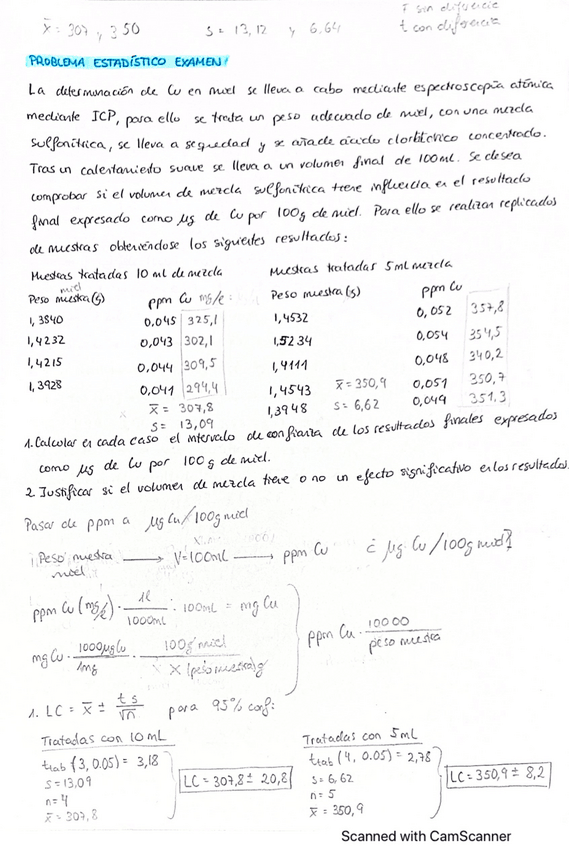 x̄ = 307, 350 s = 13,12 y 6,64
F sin diferencia
t con diferencia
PROBLEMA ESTADÍSTICO EXAMEN:
La determinación de Cu en miel se lleva a cabo mediante espectroscopía atómica
mediante ICP, para ello se trata un peso adecuado de miel, con una mezcla
sulfonítrica, se lleva a sequedad y se añade ácido clorhídrico concentrado.
Tras un calentamiento suave se lleva a un volumen final de 100mL. Se desea
comprobar si el volumen de mezcla sulfonítrica tiene influencia en el resultado
final expresado como µg de Cu por 100g de miel. Para ello se realizan replicados
de muestras obteniéndose los siguientes resultados:
Muestras tratadas 10 ml de mezcla Muestras tratadas 5mL mezcla
miel
Peso muestra (g) ppm Cu mg/l: Peso muestra (g) ppm Cu
1,3840 0,045 325,1 1,4532 0,052 357,8
1,4232 0,043 302,1 1,5234 0,054 354,5
1,4215 0,044 309,5 1,4111 0,048 340,2
1,3928 0,041 294,4 1,4543 x̄ = 350,9 0,051 350,7
x̄ = 307,8 1,3948 s = 6,62 0,049 351,3
s = 13,09
1. Calcular en cada caso el intervalo de confianza de los resultados finales expresados
como µg de Cu por 100 g de miel.
2. Justificar si el volumen de mezcla tiene o no un efecto significativo en los resultados.
Pasar de ppm a µg Cu/100g miel
Peso muestra miel → V=100mL → ppm Cu ¿ µg Cu/100g miel?
ppm Cu (mg/l) · 1l/1000ml · 100mL = mg Cu
ppm Cu · 10000/peso muestra
mg Cu · 1000µg Cu/1mg · 100g miel/X (peso muestra) g
1. LC = x̄ ± ts/√n para 95% conf:
Tratadas con 10 mL Tratadas con 5mL
t tab (3, 0.05) = 3,18 t tab (4, 0.05) = 2,78
s = 13,09 LC = 307,8 ± 20,8 s = 6,62 LC = 350,9 ± 8,2
n = 4 n = 5
x̄ = 307,8 x̄ = 350,9
Scanned with CamScanner